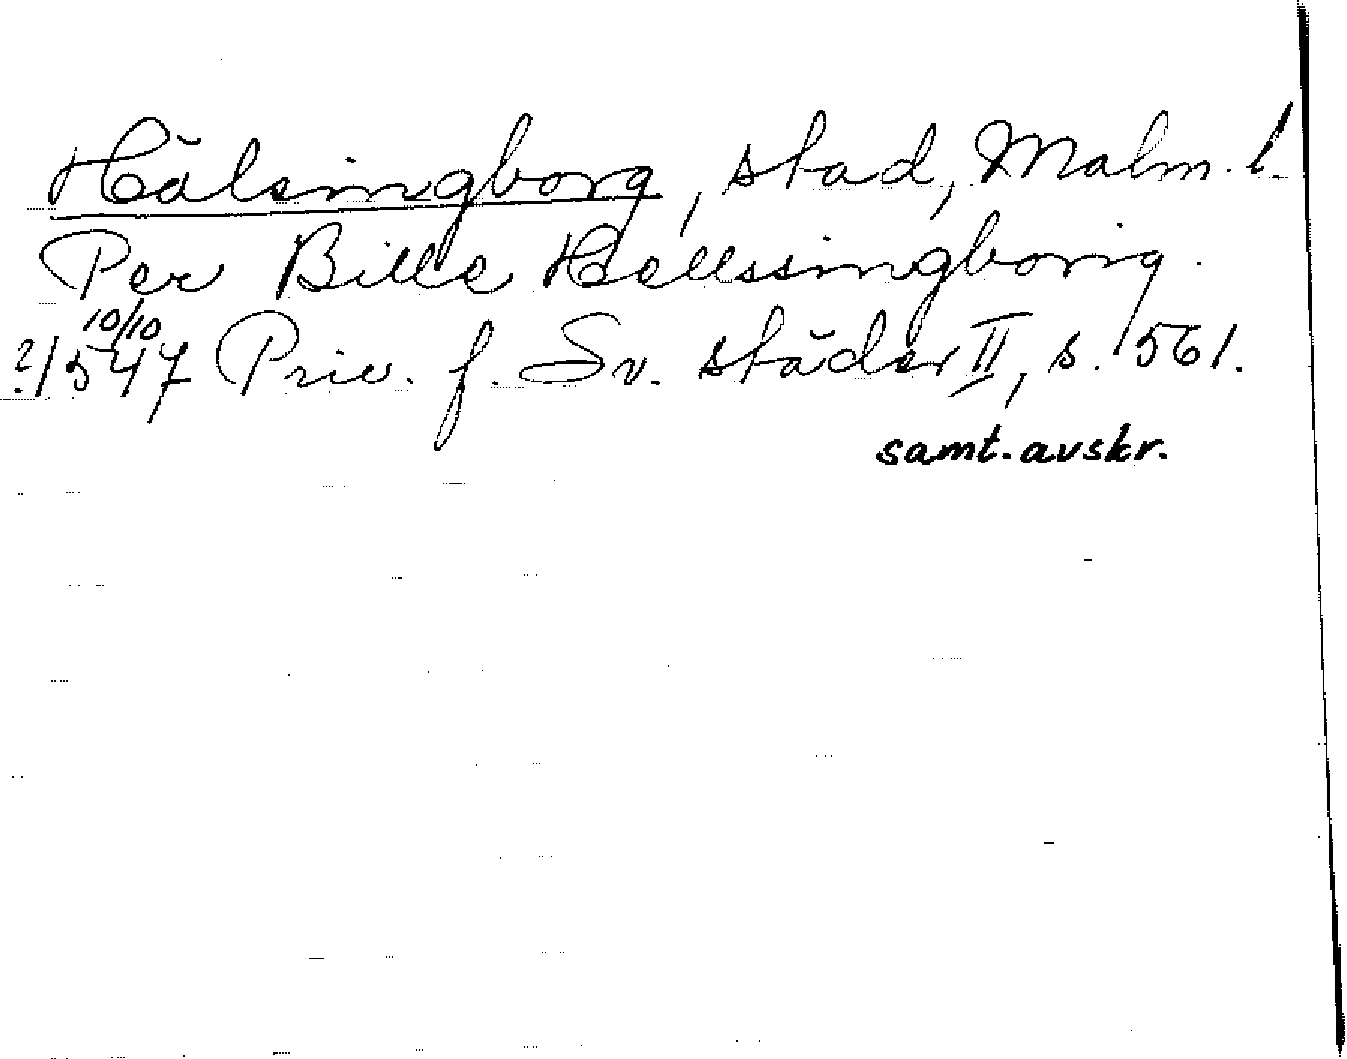 Hälsingborg, stad, Malm. l.
Per Bille Hellssingborig.
10/10
?1547 Priv. f. Sv. städer II, s. 561.
samt. avskr.